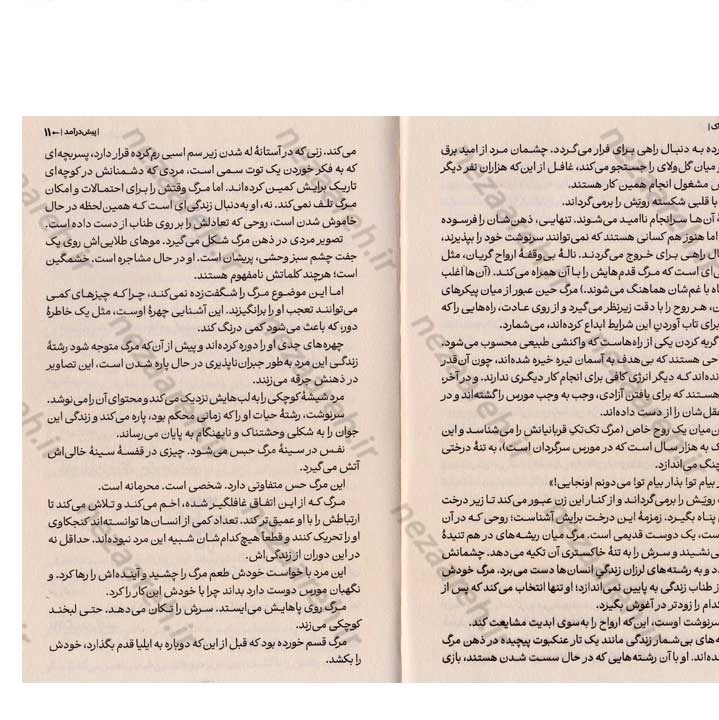 اک |
رده به دنبال راهی برای فرار می‌گردد. چشمان مرد از امید برق
میان گل‌ولای را جستجو می‌کند، غافل از این‌که هزاران نفر دیگر
مشغول انجام همین کار هستند.
با قلبی شکسته رویش را برمی‌گرداند.
آن‌ها سرانجام ناامید می‌شوند. تنهایی، ذهن‌شان را فرسوده
اما هنوز هم کسانی هستند که نمی‌توانند سرنوشت خود را بپذیرند،
راهی برای خروج می‌گردند. نالهٔ بی‌وقفهٔ ارواح گریان، مثل
ای است که مرگ قدم‌هایش را با آن همراه می‌کند. (آن‌ها اغلب
با غم‌شان هماهنگ می‌شوند.) مرگ حین عبور از میان پیکرهای
هر روح را با دقت زیرنظر می‌گیرد و از روی عادت، راه‌هایی را که
برای تاب آوردنِ این شرایط ابداع کرده‌اند، می‌شمارد.
گریه کردن یکی از راه‌هاست که واکنشی طبیعی محسوب می‌شود.
حی هستند که بی‌هدف به آسمان تیره خیره شده‌اند، چون آن‌قدر
نده‌اند که دیگر انرژی کافی برای انجام کار دیگری ندارند. و در آخر،
هستند که برای یافتن آزادی، وجب به وجب مورس را گشته‌اند و در
عقل‌شان را از دست داده‌اند.
میان یک روح خاص (مرگ تک‌تکِ قربانیانش را می‌شناسد و این
ک به هزار سال است که در مورس سرگردان است)، به تنهٔ درختی
چنگ می‌اندازد.
بیام تو! بذار بیام تو! می‌دونم اونجایی!»
رویش را برمی‌گرداند و از کنار این زن عبور می‌کند تا زیر درخت
پناه بگیرد. زمزمهٔ این درخت برایش آشناست؛ روحی که در آن
است، یک دوست قدیمی است. مرگ میان ریشه‌های در هم تنیدهٔ
می‌نشیند و سرش را به تنهٔ خاکستری آن تکیه می‌دهد. چشمانش
دد و به رشته‌های لرزان زندگی انسان‌ها دست می‌برد. مرگ خودش
طناب زندگی به پایین نمی‌اندازد؛ او تنها انتخاب می‌کند که پس از
کدام را زودتر در آغوش بگیرد.
سرنوشت اوست، این‌که ارواح را به‌سوی ابدیت مشایعت کند.
ه‌های بی‌شمار زندگی مانند یک تار عنکبوت پیچیده در ذهن مرگ
ده‌اند. او با آن رشته‌هایی که در حال سست شدن هستند، بازی
| پیش‌درآمد | ← ۱۱
می‌کند. زنی که در آستانهٔ له شدن زیر سم اسبی رم‌کرده قرار دارد، پسربچه‌ای
که به فکر خوردن یک توت سمی است، مردی که دشمنانش در کوچه‌ای
تاریک برایش کمین کرده‌اند. اما مرگ وقتش را برای احتمالات و امکان
مرگ تلف نمی‌کند. نه، او به‌دنبال زندگی‌ای است که همین‌لحظه در حال
خاموش شدن است، روحی که تعادلش را بر روی طناب از دست داده است.
تصویر مردی در ذهن مرگ شکل می‌گیرد. موهای طلایی‌اش روی یک
جفت چشم سبز وحشی، پریشان است. او در حال مشاجره است. خشمگین
است؛ هرچند کلماتش نامفهوم هستند.
اما این موضوع مرگ را شگفت‌زده نمی‌کند، چرا که چیزهای کمی
می‌توانند تعجب او را برانگیزند. این آشنایی چهرهٔ اوست، مثل یک خاطرهٔ
دور، که باعث می‌شود کمی درنگ کند.
چهره‌های جدی او را دوره کرده‌اند و پیش از آن‌که مرگ متوجه شود رشتهٔ
زندگی این مرد به‌طور جبران‌ناپذیری در حال پاره شدن است، این تصاویر
در ذهنش جرقه می‌زنند.
مرد شیشهٔ کوچکی را به لب‌هایش نزدیک می‌کند و محتوای آن را می‌نوشد.
سرنوشت، رشتهٔ حیات او را که زمانی محکم بود، پاره می‌کند و زندگی این
جوان را به شکلی وحشتناک و نابهنگام به پایان می‌رساند.
نفس در سینهٔ مرگ حبس می‌شود. چیزی در قفسهٔ سینهٔ خالی‌اش
آتش می‌گیرد.
این مرگ حس متفاوتی دارد. شخصی است. محرمانه است.
مرگ که از این اتفاق غافلگیر شده، اخم می‌کند و تلاش می‌کند تا
ارتباطش را با او عمیق‌تر کند. تعداد کمی از انسان‌ها توانسته‌اند کنجکاوی
او را تحریک کنند و قطعاً هیچ‌کدام‌شان شبیه این مرد نبوده‌اند. حداقل نه
در این دوران از زندگی‌اش.
این مرد با خواست خودش طعم مرگ را چشید و آینده‌اش را رها کرد. و
نگهبان مورس دوست دارد بداند چرا با خودش این‌کار را کرد.
مرگ روی پاهایش می‌ایستد. سرش را تکان می‌دهد. حتی لبخند
کوچکی می‌زند.
مرگ قسم خورده بود که قبل از این‌که دوباره به ایلیا قدم بگذارد، خودش
را بکشد.